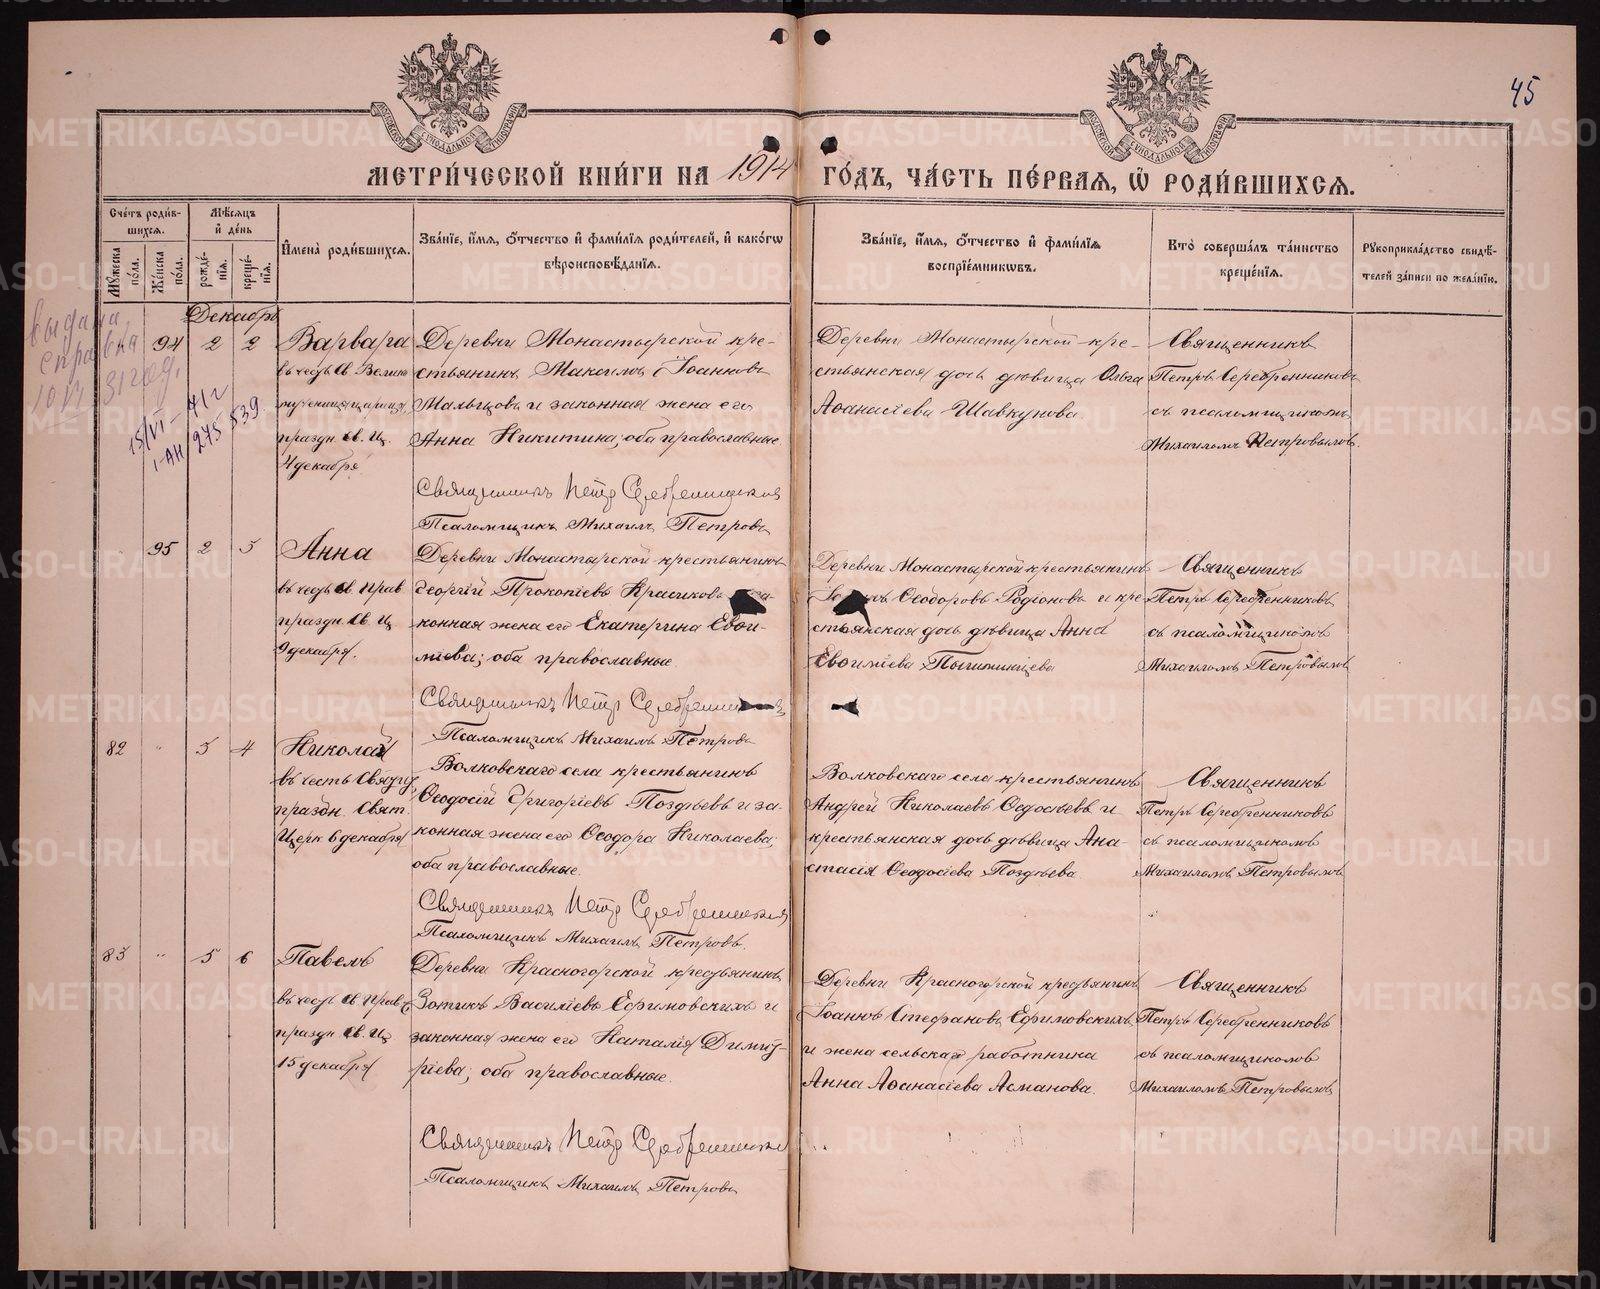 45
МЕТРИ́ЧЕСКОЙ КНИ́ГИ НА 1914 ГО́ДЪ, ЧА́СТЬ ПЕ́РВАЯ, Ѡ҆ РОДИ́ВШИХСЯ.
Сче́тъ роди́вшихся.
Му́жеска по́ла.
Же́нска по́ла.
Мѣ́сяцъ и҆ де́нь
рожде́нїя.
креще́нїя.
И҆мена̀ роди́вшихся.
Зва́нїе, и҆́мя, ѻ҆́тчество и҆ фами́лїя роди́телей, и҆ како́гѡ вѣроисповѣ́данїя.
Зва́нїе, и҆́мя, ѻ҆́тчество и҆ фами́лїя воспрїе́мникѡвъ.
Кто̀ соверша́лъ та́инство креще́нїя.
Рукоприкла́дство свидѣ́телей за́писи по жела́нїю.
Декабрь
выдана
справка
10 VI 31 год.
15/VI – 41 г
I-АН 275539.
94 2 2
Варвара
въ честь св. Велико
мученицы царицы,
праздн. св. Ц.
4 декабря
Деревни Монастырской кре-
стьянинъ Максимъ Іоанновъ
Мальцовъ и законная жена его
Анна Никитина; оба православные
Священникъ Петр Серебренников
Псаломщикъ Михаилъ Петровъ
Деревни Монастырской кре-
стьянская дочь дѣвица Ольга
Аѳанасіева Шавкунова.
Священникъ
Петръ Серебренниковъ
съ псаломщикомъ
Михаиломъ Петровымъ.
95 2 3
Анна
въ честь св. прав
праздн. св. Ц
9 декабря.
Деревни Монастырской крестьянинъ
Георгій Прокопіевъ Красиковъ
конная жена его Екатерина Евѳи-
міева; оба православные.
Священникъ Петр
Псаломщикъ Михаилъ Петровъ
Деревни Монастырской крестьянинъ
Ѳеодоровъ Родіоновъ и кре-
стьянская дочь дѣвица Анна
Евѳиміева
Священникъ
Петръ Серебренниковъ
съ псаломщикомъ
Михаиломъ Петровымъ
82 " 3 4
Николай
въ честь Святит
праздн. Свят.
Церк 6 декабря
Волковскаго села крестьянинъ
Ѳеодосій Григоріевъ Поздѣевъ и за-
конная жена его Ѳеодора Николаева;
оба православные.
Священникъ Петр Серебренников
Псаломщикъ Михаилъ Петровъ.
Волковскаго села крестьянинъ
Андрей Николаевъ Ѳедосѣевъ и
крестьянская дочь дѣвица Ана-
стасія Ѳеодосіева Поздѣева.
Священникъ
Петръ Серебренниковъ
съ псаломщикомъ
Михаиломъ Петровымъ
83 " 5 6
Павелъ
въ честь св прав
праздн св. Ц
15 декабря
Деревни Красногорской крестьянинъ
Зотикъ Василіевъ Ефимовскихъ и
законная жена его Наталія Димит-
ріева; оба православные.
Священникъ Петр Серебренников
Псаломщикъ Михаилъ Петровъ
Деревни Красногорской крестьянинъ
Іоаннъ Стефановъ Ефимовскихъ
и жена сельскаго работника
Анна Аѳанасіева Асманова.
Священникъ
Петръ Серебренниковъ
съ псаломщикомъ
Михаиломъ Петровымъ
METRIKI.GASO-URAL.RU